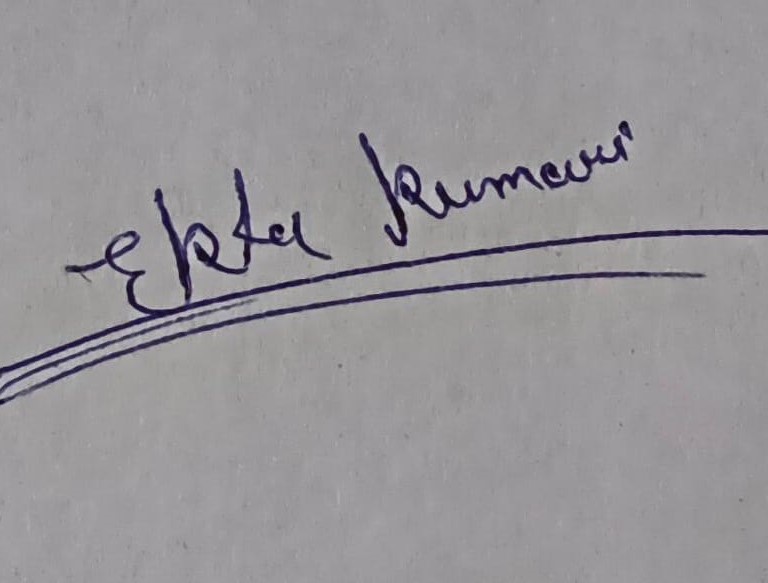 Ekta Kumari